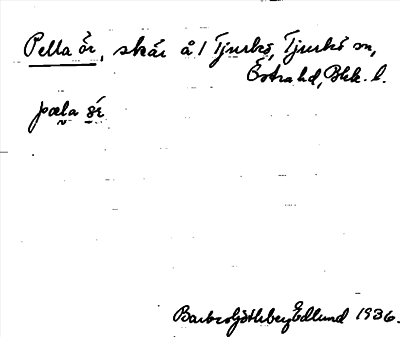 Pella ör, skär å 1 Tjurkö, Tjurkö sn,
Östra hd, Blek. l.
pæla ör
Barbro Götlberg Edlund 1936.